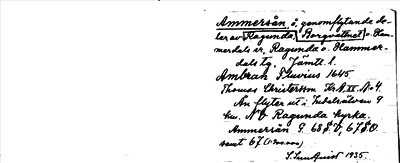 Ammersån, å, genomflytande de-
lar av Ragunda, Borgvattnet o. Ham-
merdals sr, Ragunda o. Hammer-
dals tg, Jämtl. l.
Ambran Fluvius 1645
Thomas Christersson N:o 4.
Ån flyter ut i Indalsälven 9
km. NO Ragunda kyrka.
Ammersån G. 68 S O, 67 S O.
samt 67
S. Lundquist 1935.